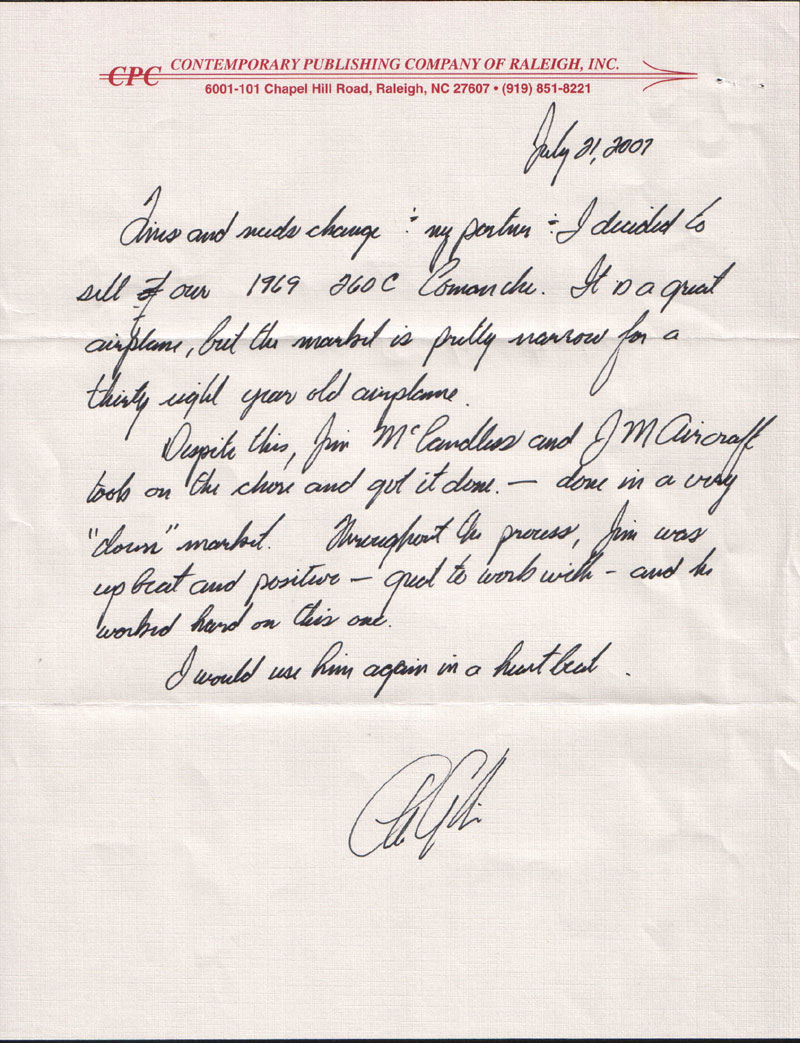 CPC CONTEMPORARY PUBLISHING COMPANY OF RALEIGH, INC.
6001-101 Chapel Hill Road, Raleigh, NC 27607 • (919) 851-8221
July 21, 2007
Times and needs change & my partner & I decided to
sell our 1969 260C Comanche. It is a great
airplane, but the market is pretty narrow for a
thirty eight year old airplane.
Despite this, Jim McCandless and J M Aircraft
took on the chore and got it done. — done in a very
"down" market. Throughout the process, Jim was
up beat and positive — great to work with — and he
worked hard on this one.
I would use him again in a heart beat.